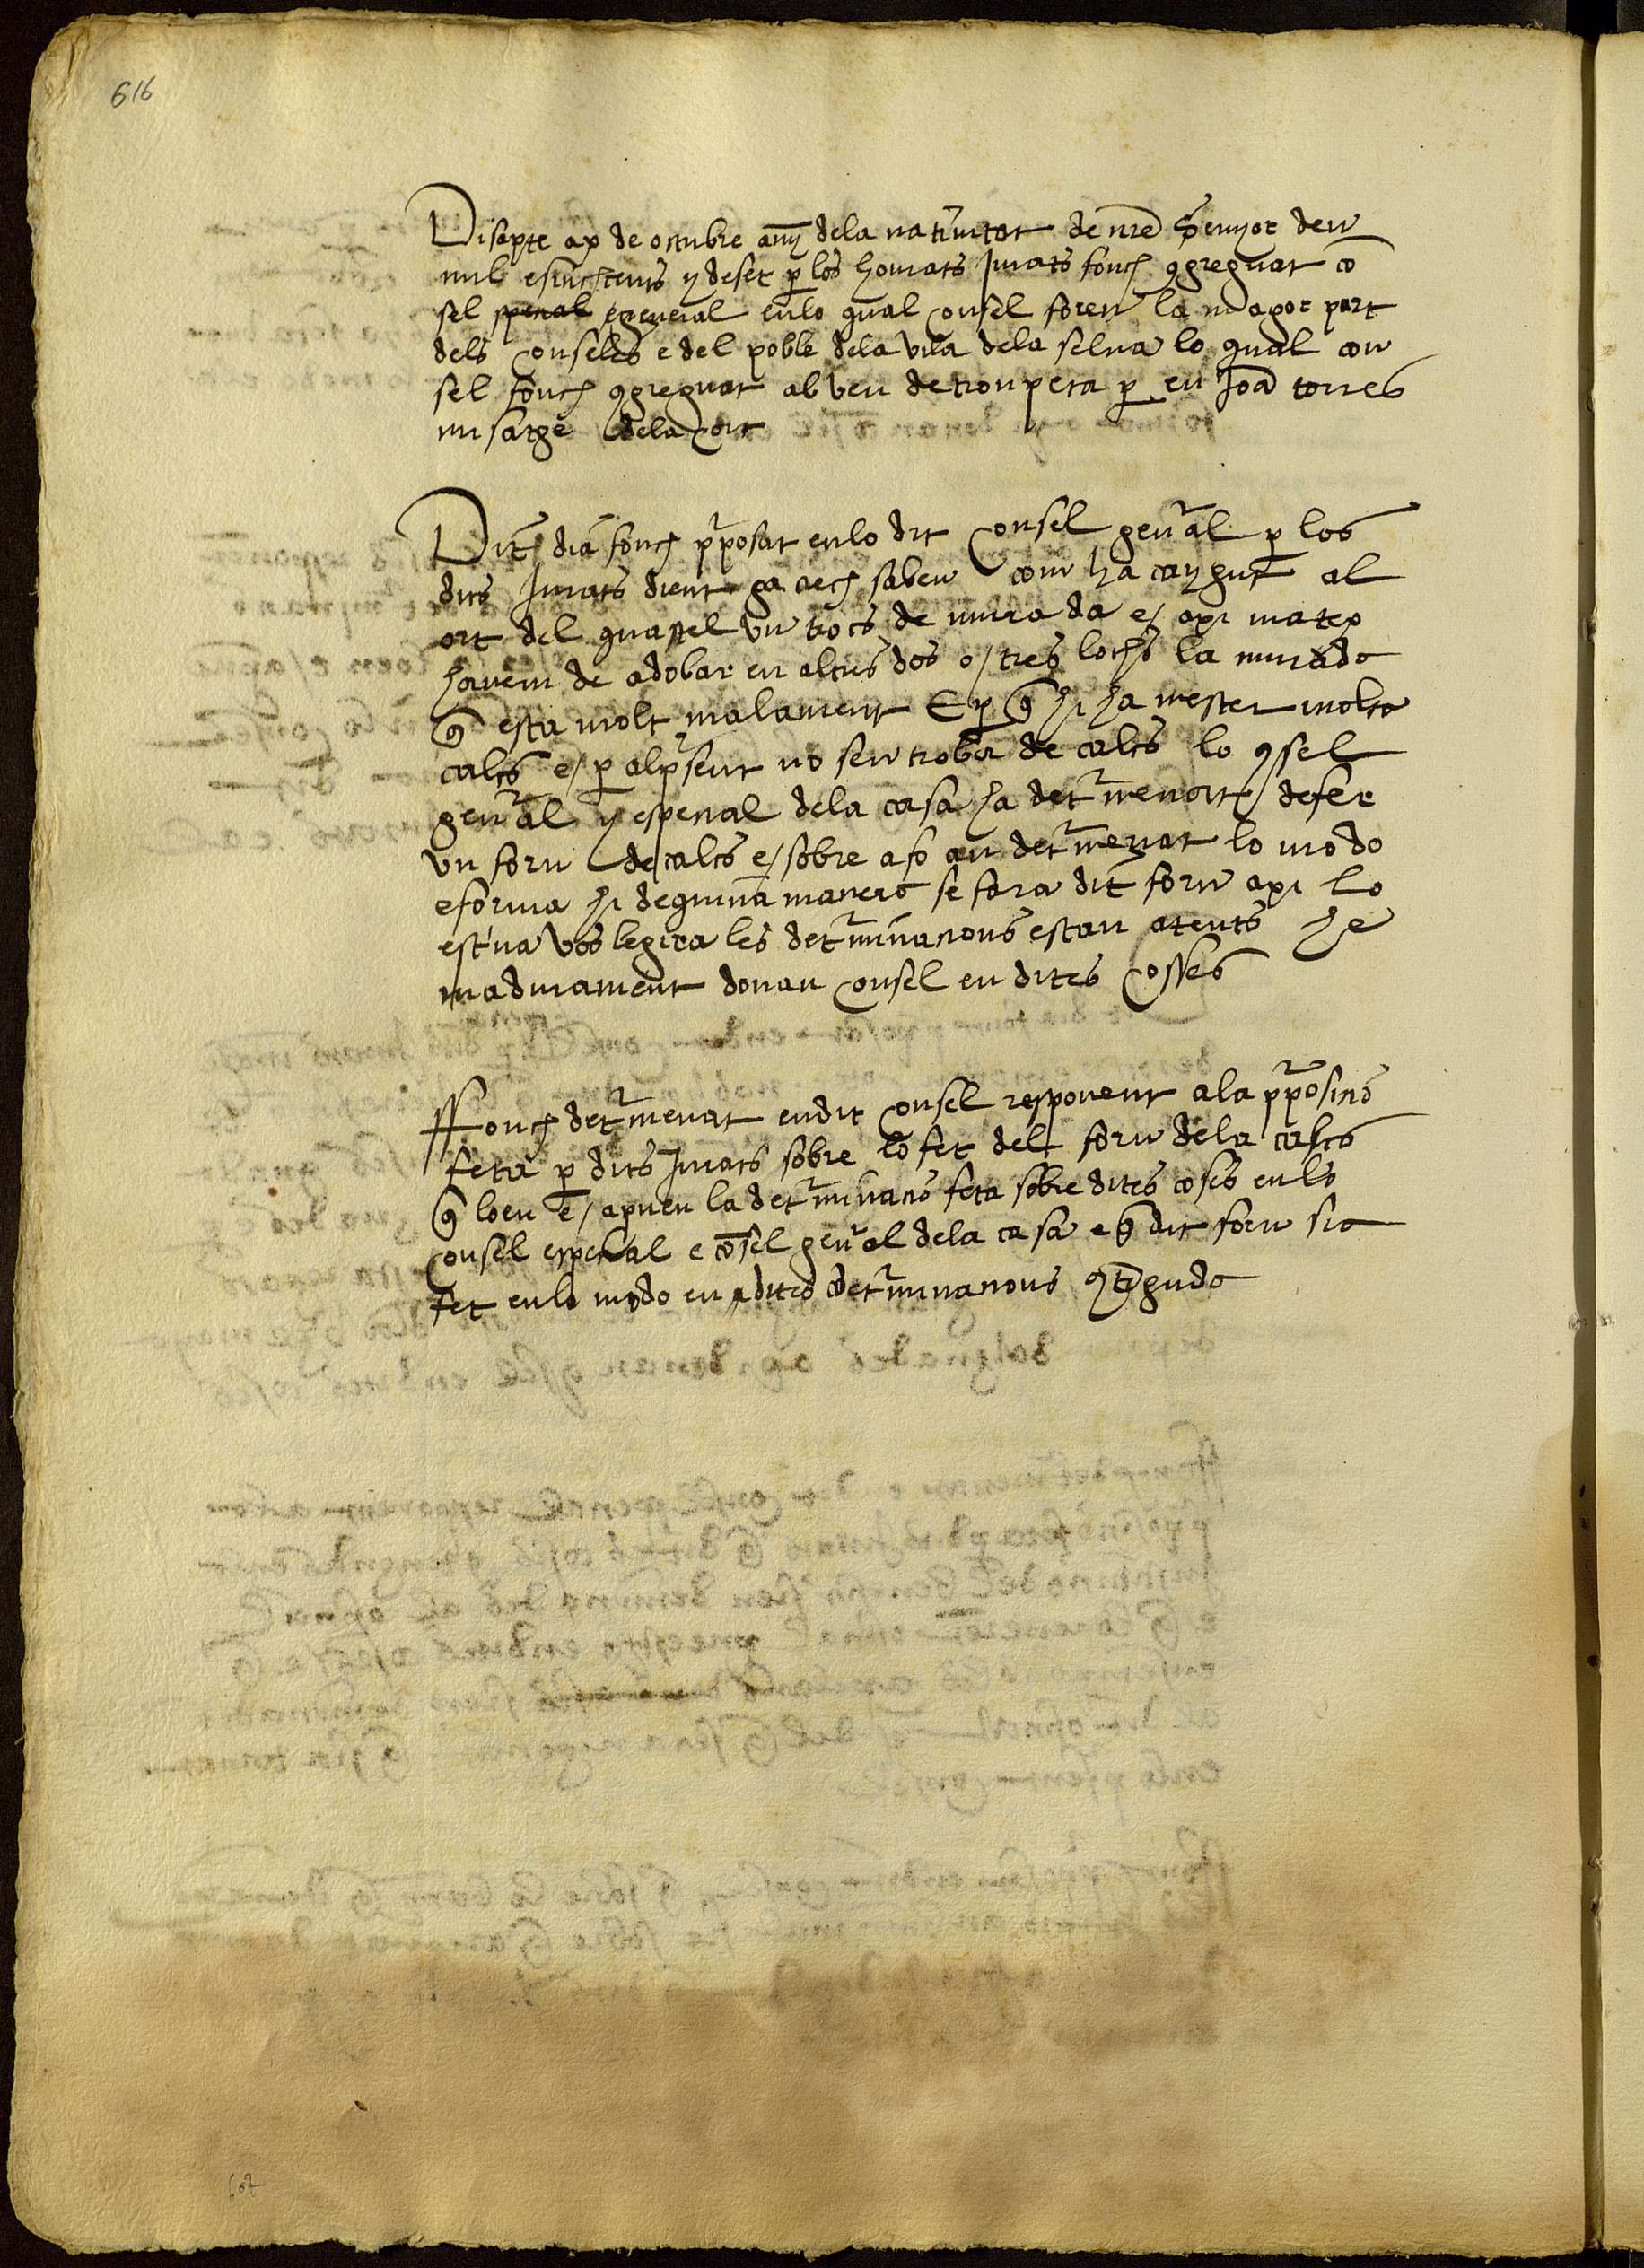 616
Disapte a x de octubre any dela nativitat de nre Senyor deu
mil e sinchcents y deset p los honrats Jurats fonch ꝯgreguat co
sel spetial e general enlo qual Consel foren la magor part
dels Conseles e del poble dela vila dela selva lo qual con
sel fonch ꝯgreguat ab veu de trompeta p en Joã torres
misatge dela Cort
Dit dia fonch pposat enlo dit Consel genal p los
dits Jurats dient ga aech saben com ha caygut al
ort del quastel un trocs de murada e/ axi matex
havem de adobar en altres dos o/ tres lochs la murada
q esta molt malament E p q hi ha mester molta
calcs e/ p al psent no sen troba de calcs lo ꝯsel
genal y espetial dela casa ha detmenat de fer
un forn de calcs e/ sobre aso an detmenat lo modo
e forma hi de quina manera se fara dit forn axi lo
estiva vos legira les detminations estau atents he
madurament donau Consel en dites Cosses
Ffonch detmenat en dit Consel responent ala pposicio
feta p dits Jurats sobre lo fet del forn dela calcs
q loen e/ aproven la detminacio feta sobre dites coses enlo
Consel espetial e cosel genal dela casa e q dit forn sia
fet enlo modo en dites detminations ꝯtenguda